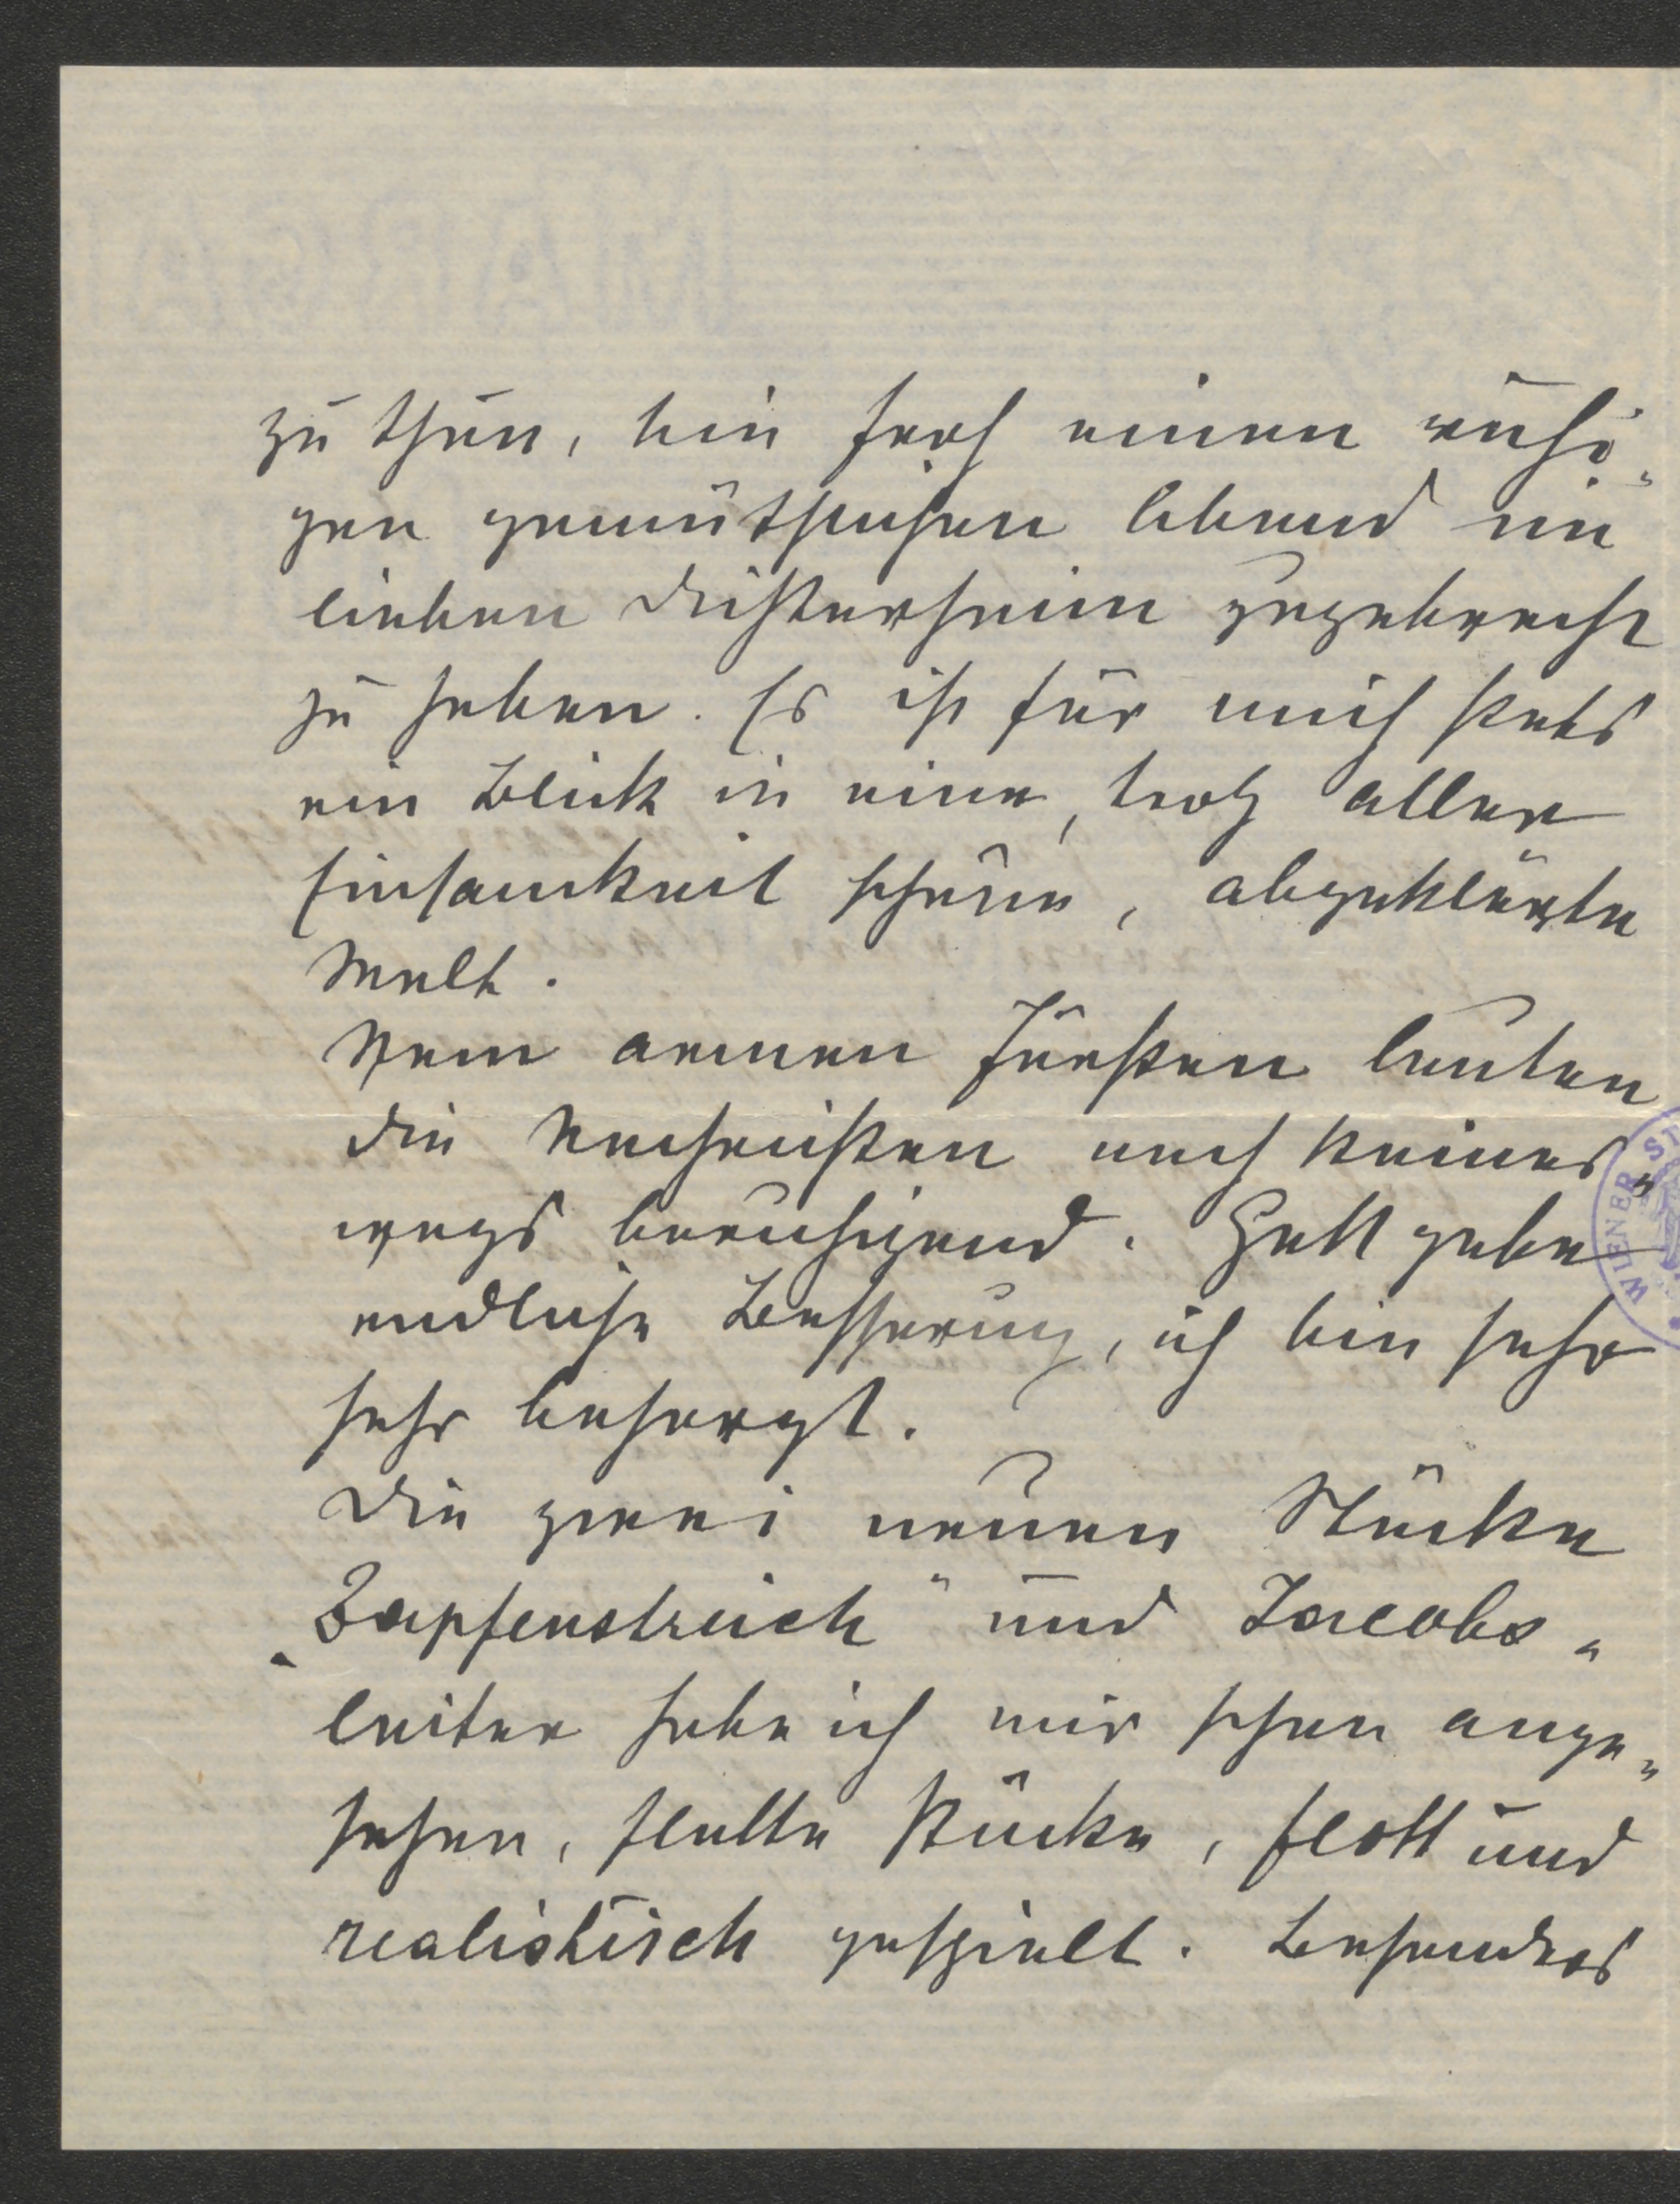 zu thun, bin froh einen ruhi-
gen gemüthlichen Abend im
lieben Dichterheim zugebracht
zu haben. Es ist für mich stets
ein Blick in eine, trotz aller
Einsamkeit schöne, abgeklärte
Welt.
Vom armen Fürsten lauten
die Nachrichten noch keines-
wegs beruhigend. Gott gebe
endliche Besserung, ich bin sehr
sehr besorgt.
Die zwei neuen Stücke
„Zapfenstreich" und Jacobs-
leiter habe ich mir schon ange-
sehen, flotte Stücke, flott und
realistisch gespielt. Besonders
WIENER ST